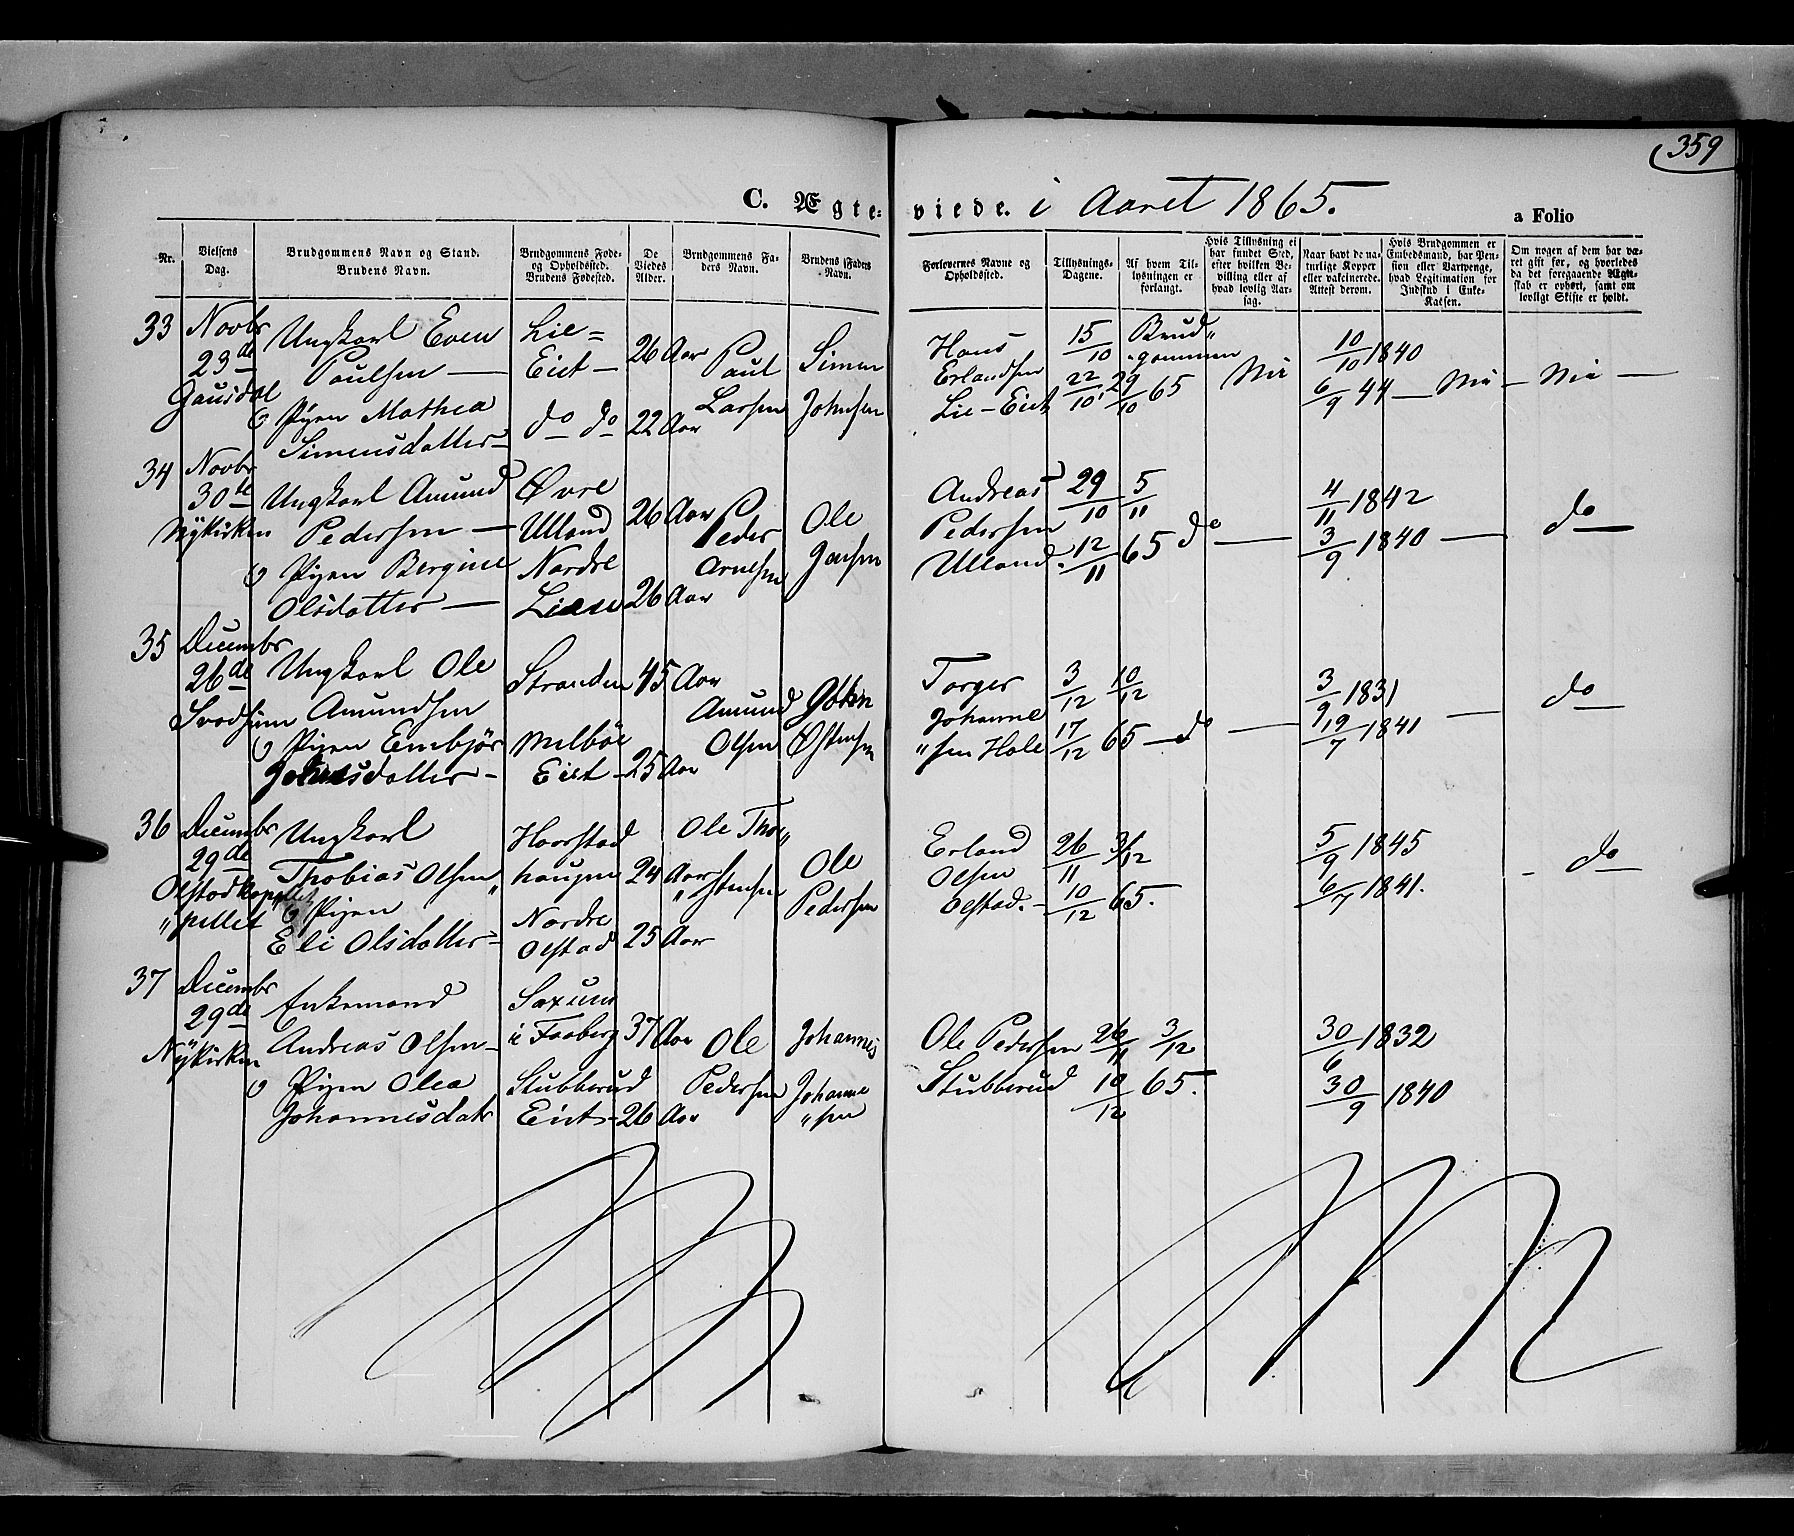 359
C. Ægte- viede. i Aaret 1865.
a Folio
Nr.
Vielsens
Dag.
Brudgommens Navn og Stand.
Brudens Navn.
Brudgommens Føde-
og Opholdssted.
Brudens Fødested.
De
Viedes
Alder.
Brudgommens Fa-
ders Navn.
Brudens Faders
Navn.
Forlovernes Navne og
Opholdssted.
Tillysnings-
Dagene.
Af hvem Til-
lysningen er
forlangt.
Hvis Tillysning ei
har fundet Sted,
efter hvilken Be-
villing eller af
hvad lovlig Aar-
sag.
Naar havt de na-
turlige Kopper
eller vakcinerede.
Attest derom.
Hvis Brudgommen er
Embedsmand, har Pen-
sion eller Vartpenge,
hvad Legitimation for
Indskud i Enke-
Kassen.
Om nogen af dem har væ-
ret gift før, og hvorledes
da det foregaaende Ægte-
skab er ophørt, samt om
lovligt Skifte er holdt.
33
Novbr
23de
Gausdal
Ungkarl Even
Paulsen —
o Pigen Mathea
Simensdatter -
Lie =
Eiet -
do do
26 Aar
22 Aar
Paul
Larsen
Simen
Johnsen
Hans
Erlandsen
Lie - Eiet
15/10
22/10, 29/10 65
Brud„
„gommen
Nei
10/10 1840
6/9 44
— Nei —
Nei —
34
Novbr
30te
Nykirken
Ungkarl Amund
Pedersen —
o Pigen Bergine
Olsdatter —
Øvre
Ulland
Nordre
Lien
26 Aar
26 Aar
Peder
Arnesen
Ole
Jensen
Andreas
Pedersen
Ulland.
29/10 5/11
12/11 65
do —
4/11 1842
3/9 1840 —
do
35
Decembr
26de
Svadsum
Ungkarl Ole
Amundsen
o Pigen Embjør
Johnsdatter -
Stranden
Melbøe
Eiet -
45 Aar
25 Aar
Amund
Olsen
John
Østensen
Torger
Johanne
„sen Hole
3/12 10/12
17/12 65
— do —
3/9 1831
19/7 1841 —
do
36
Decembr
29de
Olstadkap
„pellet
Ungkarl
Thobias Olsen
o Pigen
Eli Olsdatter -
Haarstad
haugen
Nordre
Olstad
24 Aar
25 Aar
Ole Thor„
„stensen
Ole
Pedersen
Erland
Olsen
Olstad. -
26/11 3/12
10/12 65.
5/9 1845
6/7 1841.
- do
37
Decembr
29de
Nykirken
Enkemand
Andreas Olsen -
o Pigen Olea
Johannesdatr
Saxum
i Faaberg
Stubberud
Eiet -
37 Aar
26 Aar
Ole
Pedersen
Johannes
Johanne
„sen
Ole Pedersen
Stubberud
26/11 3/12
10/12 65.
30/6 1832
30/9 1840